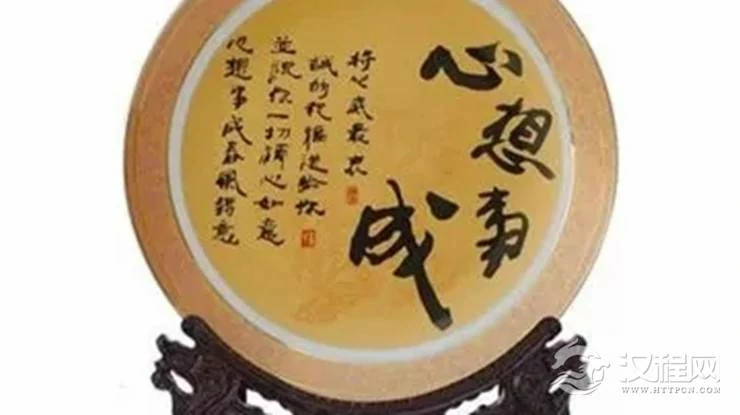 心想事
成
将心底最衷
诚的祝福送给你
并祝你一切顺心如意
心想事成春风得意
汉程网
WWW.HTTPCN.COM